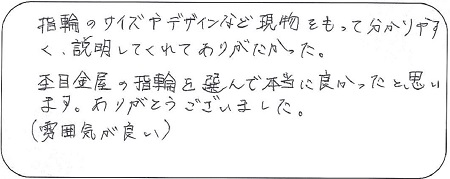 指輪のサイズやデザインなど現物をもって分かりやす
く、説明してくれてありがたかった。
杢目金屋の指輪を選んで本当に良かったと思い
ます。ありがとうございました。
(雰囲気が良い)